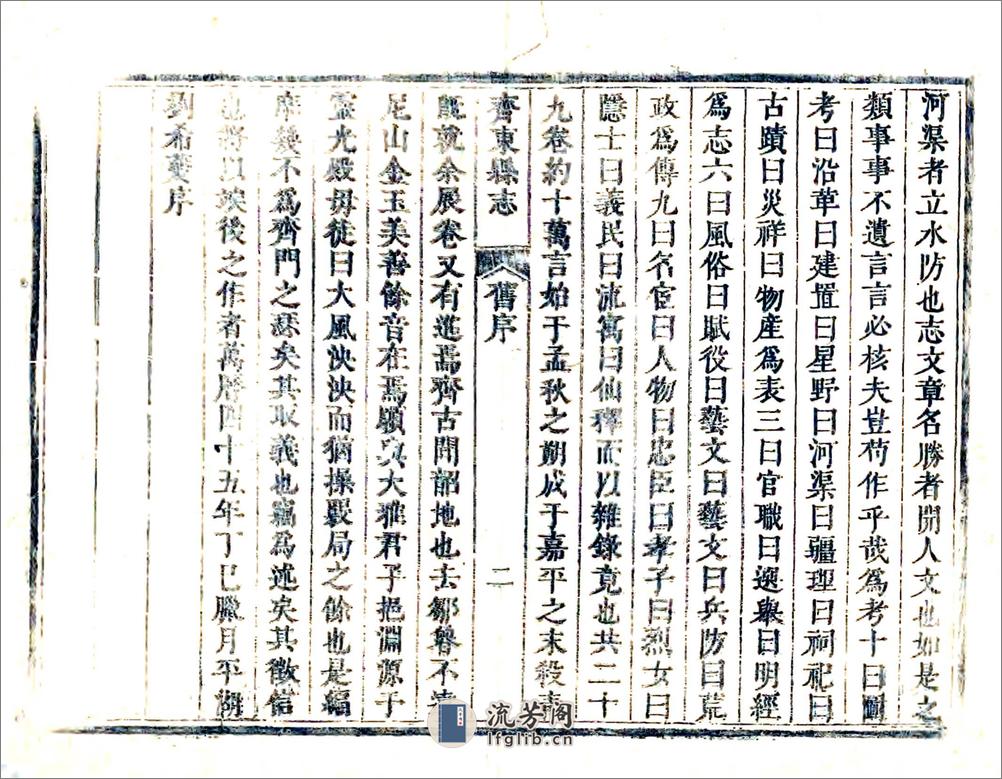 河渠者立水防也志文章名勝者開人文也如是之
類事事不遺言言必核夫豈苟作乎哉爲考十曰圖
考曰沿革曰建置曰星野曰河渠曰疆理曰祠祀曰
古蹟曰災祥曰物產爲表三曰官職曰選舉曰明經
爲志六曰風俗曰賦役曰藝文曰藝文曰兵防曰荒
政爲傳九曰名宦曰人物曰忠臣曰孝子曰烈女曰
隱士曰義民曰流寓曰仙釋而以雜錄竟也共二十
九卷約十萬言始于孟秋之朔成于嘉平之末殺青
齊東縣志
舊序
二
既就余展卷又有進焉齊古聞韶地也去鄒魯不遠
尼山金玉美善餘音在焉願與大雅君子挹淵源于
靈光殿毋徒曰大風泱泱而猶操覇局之餘也是編
庶幾不爲齊門之瑟矣其取義也竊爲述矣其徵信
也將以俟後之作者萬曆四十五年丁巳臘月平湖
劉希夔序
流芳阁
lfglib.cn